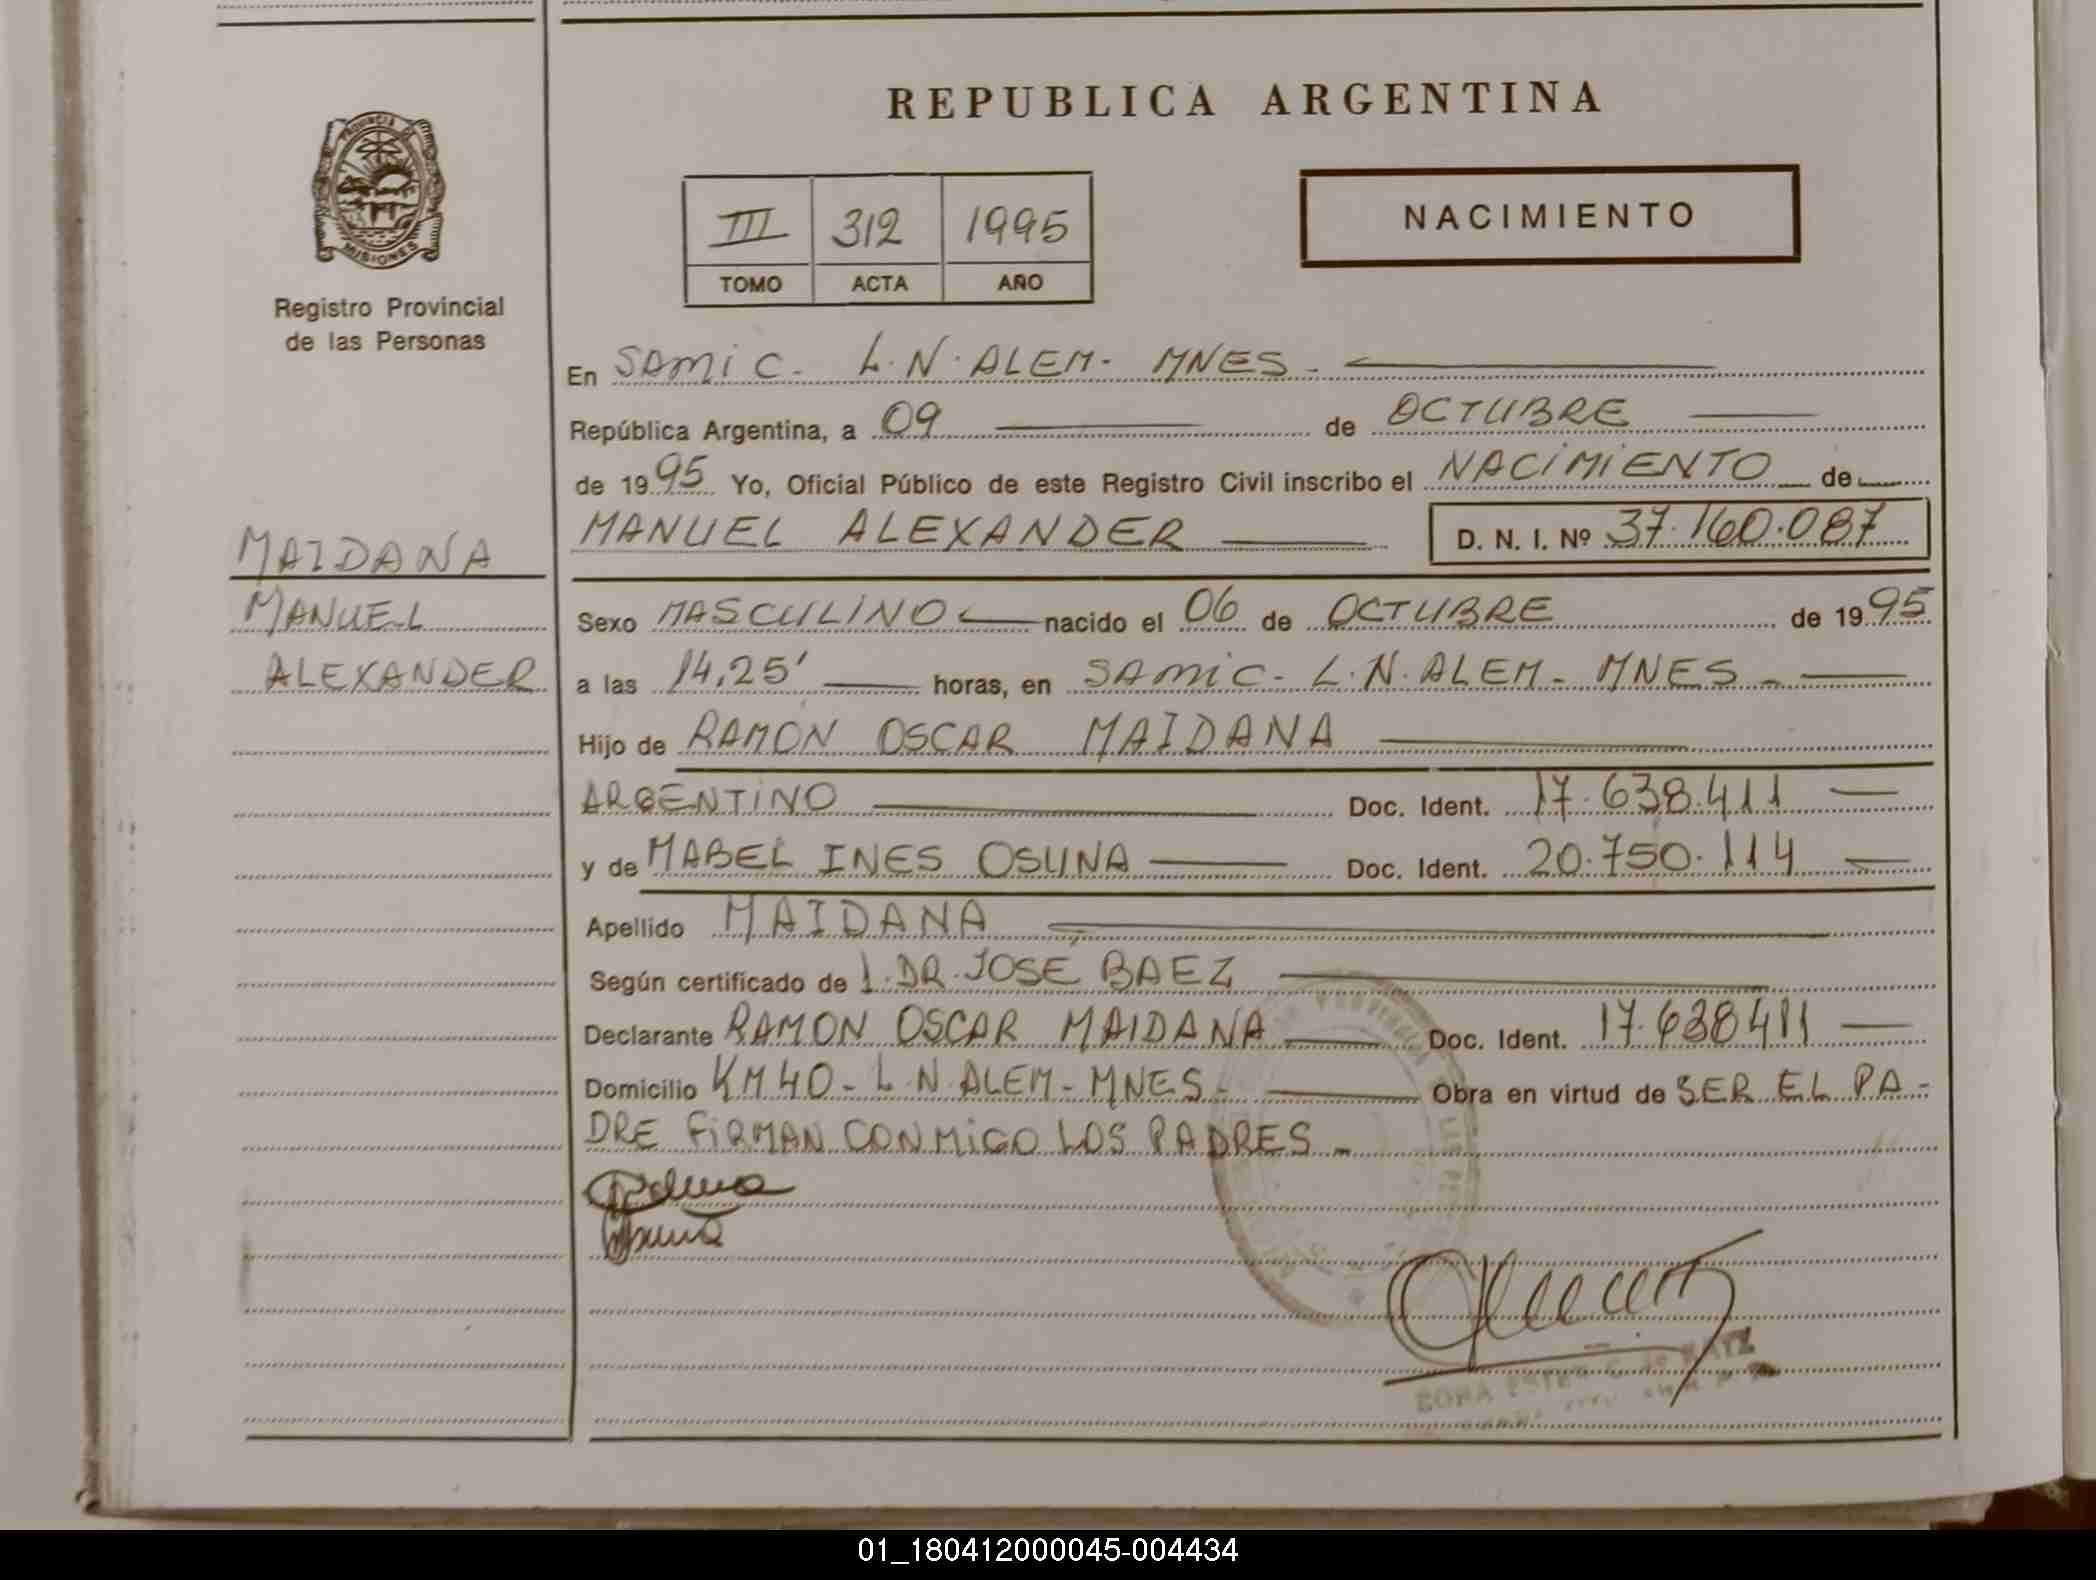 REPUBLICA ARGENTINA
PROVINCIA DE
MISIONES
Registro Provincial
de las Personas
III 312 1995
TOMO ACTA AÑO
NACIMIENTO
En SAMIC. L.N. ALEM. MNES.
República Argentina, a 09 de OCTUBRE
de 1995 Yo, Oficial Público de este Registro Civil inscribo el NACIMIENTO de
MANUEL ALEXANDER D. N. I. Nº 37.160.087
MAIDANA
MANUEL
ALEXANDER
Sexo MASCULINO nacido el 06 de OCTUBRE de 1995
a las 14,25' horas, en SAMIC. L.N. ALEM. MNES.
Hijo de RAMON OSCAR MAIDANA
ARGENTINO Doc. Ident. 17.638.411
y de MABEL INES OSUNA Doc. Ident. 20.750.114
Apellido MAIDANA
Según certificado de 1. DR. JOSE BAEZ
Declarante RAMON OSCAR MAIDANA Doc. Ident. 17.638411
Domicilio KM 40 - L.N. ALEM - MNES - Obra en virtud de SER EL PA-
DRE FIRMAN CONMIGO LOS PADRES -
01_180412000045-004434